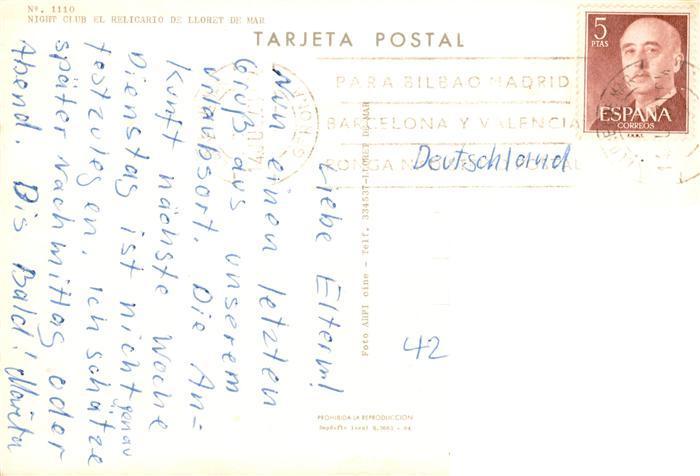 Nº. 1110
NIGHT CLUB EL RELICARIO DE LLORET DE MAR
TARJETA POSTAL
PARA BILBAO MADRID
BARCELONA Y VALENCIA
PONGA
5
PTAS
ESPAÑA
CORREOS
F.N.M.T.
Deutschland
42
Liebe Eltern!
Nun einen letzten
Gruß aus unserem
Urlaubsort. Die An=
kunft nächste Woche
Dienstag ist nicht genau
festzulegen. Ich schätze
später Nachmittag oder
Abend. Bis Bald! Marita
Foto ARPI cine - Telf. 334537-LLORET DE MAR
PROHIBIDA LA REPRODUCCION